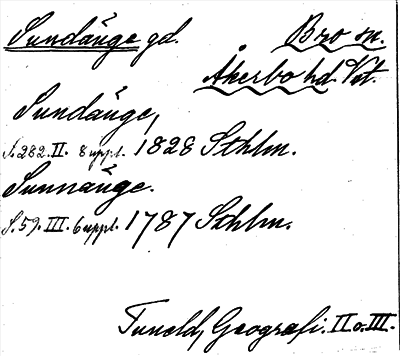 Sundänge gd. Bro sn.
Åkerbo hd. Vst.
Sundänge,
S. 282. II. 8 uppl. 1828 Sthlm.
Sunnänge.
S. 59. III. 6 uppl. 1787 Sthlm.
Tuneld, Geografi. II o. III.